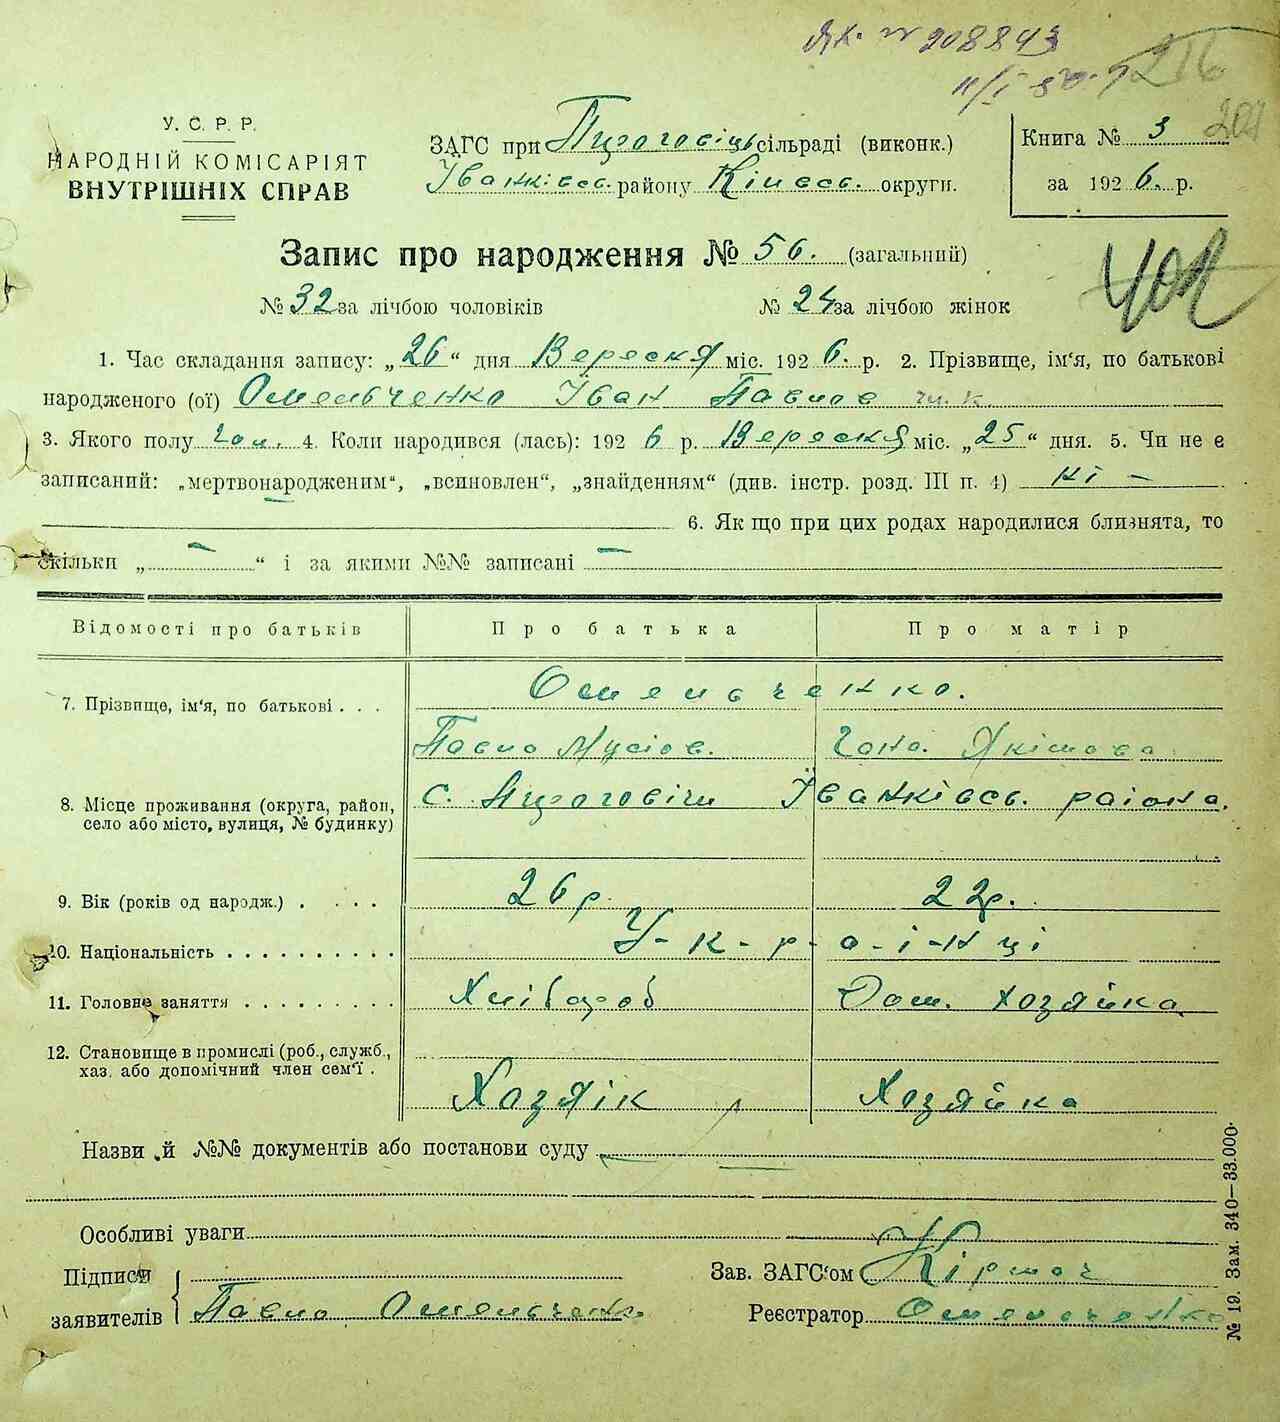 № 208843
216
201
У. С. Р. Р.
НАРОДНІЙ КОМІСАРІЯТ
ВНУТРІШНІХ СПРАВ
ЗАГС при сільраді (виконк.)
Іванківсь. району Київсь. округи.
Книга № 3
за 1926. р.
Запис про народження № 56. (загальний)
№ 32 за лічбою чоловіків
№ 24 за лічбою жінок
402
1. Час складання запису: „26“ дня Вересня міс. 1926. р. 2. Прізвище, ім‘я, по батькові
народженого (ої) Омельченко Іван Павлов
3. Якого полу чол. 4. Коли народився (лась): 1926 р. Вересня міс. „25“ дня. 5. Чи не є
записаний: „мертвонародженим“, „всиновлен“, „знайденням“ (див. інстр. розд. III п. 4) ні —
6. Як що при цих родах народилися близнята, то
скільки „ — “ і за якими №№ записані —
Відомості про батьків
Про батька
Про матір
7. Прізвище, ім‘я, по батькові . . .
Омельченко.
Павло Мусіов.
Якімова
8. Місце проживання (округа, район,
село або місто, вулиця, № будинку)
с. Іванківсь. района.
9. Вік (років од народж.) . . . .
26 р.
22 р.
10. Національність . . . . . . . . . .
У-к-р-а-ї-н ці
11. Головне заняття . . . . . . . . .
Хлібороб
Дом. хозяйка
12. Становище в промислі (роб., служб.,
хаз. або допомічний член сем‘ї .
Хозяїн
Хозяйка
Назви й №№ документів або постанови суду —
Особливі уваги
Підписи
заявителів
Павло Омельченко
Зав. ЗАГС‘ом
Реєстратор Омельченко
№ 19. Зам. 340—33.000.